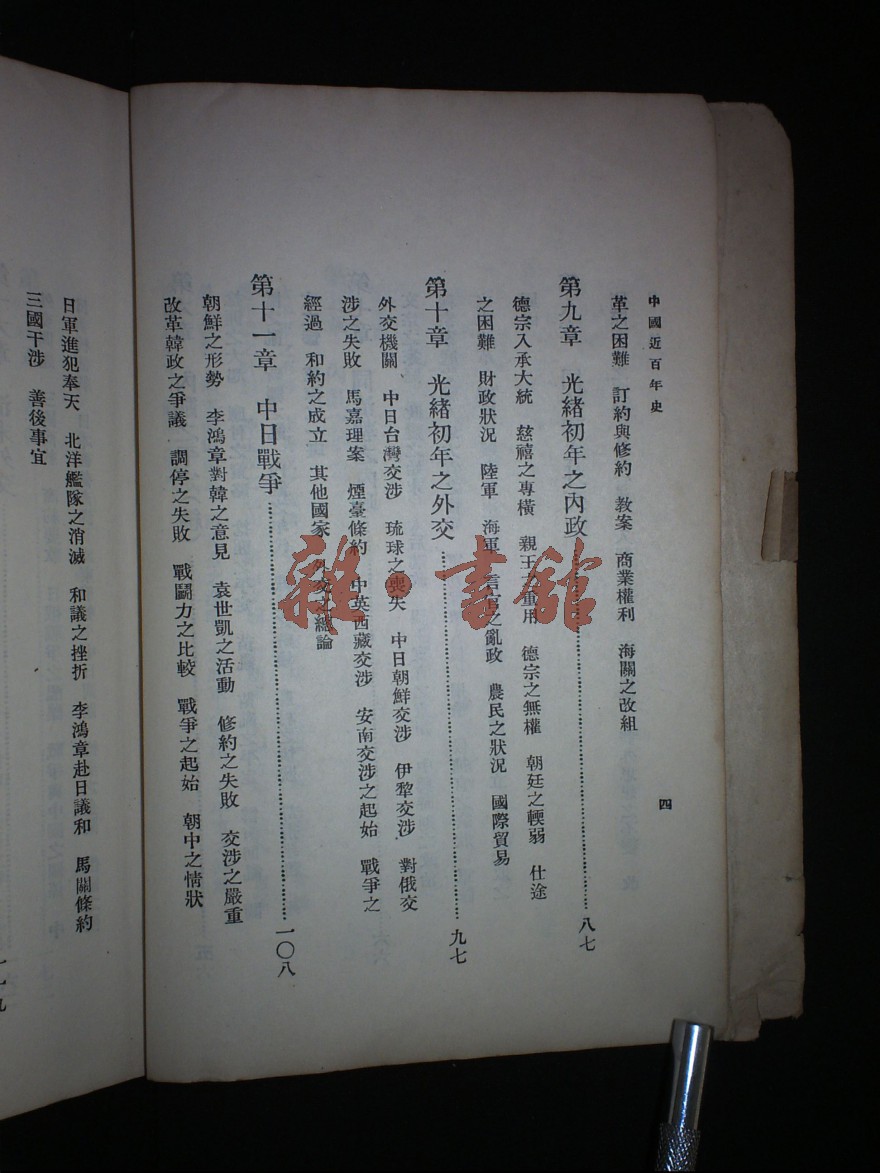 中國近百年史
四
革之困難 訂約與修約 教案 商業權利 海關之改組
第九章 光緒初年之內政……八七
德宗入承大統 慈禧之專橫 親王之重用 德宗之無權 朝廷之輭弱 仕途
之困難 財政狀況 陸軍 海軍 言官之亂政 農民之狀況 國際貿易
第十章 光緒初年之外交……九七
外交機關 中日台灣交涉 琉球之喪失 中日朝鮮交涉 伊犂交涉 對俄交
涉之失敗 馬嘉理案 煙臺條約 中英西藏交涉 安南交涉之起始 戰爭之
經過 和約之成立 其他國家 外交之總論
第十一章 中日戰爭……一〇八
朝鮮之形勢 李鴻章對韓之意見 袁世凱之活動 修約之失敗 交涉之嚴重
改革韓政之爭議 調停之失敗 戰鬭力之比較 戰爭之起始 朝中之情狀
日軍進犯奉天 北洋艦隊之消滅 和議之挫折 李鴻章赴日議和 馬關條約
三國干涉 善後事宜
雜·書館